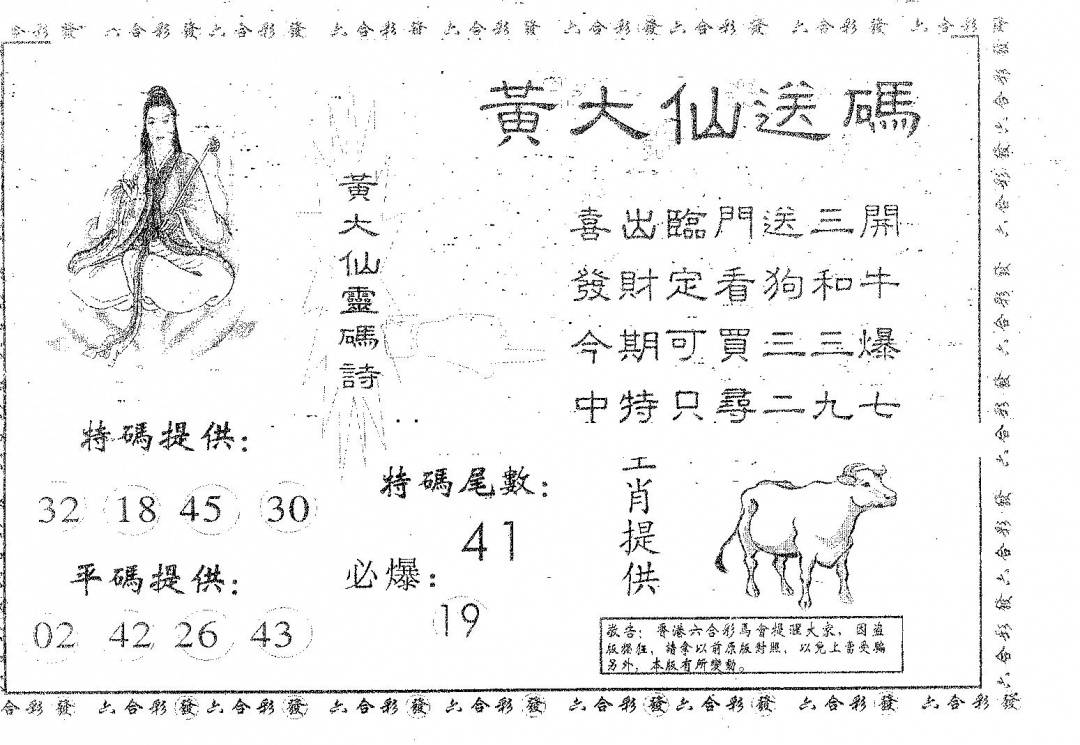 合彩發 六合彩發六合彩發 六合彩發六合彩發 六合彩發六合彩發 六合彩發 六合彩發
黃大仙送碼
黃大仙靈碼詩
喜出臨門送三開
發財定看狗和牛
今期可買二三爆
中特只尋二九七
特碼提供:
32 18 45 30
平碼提供:
02 42 26 43
特碼尾數:
41
必爆:
19
肖提供
敬告:香港六合彩馬會提醒大家,因盜
版猖狂,請拿以前原版對照,以免上當受騙
另外,本版有所變動。
合彩發 六合彩發六合彩發 六合彩發六合彩發 六合彩發六合彩發 六合彩發 六合彩發